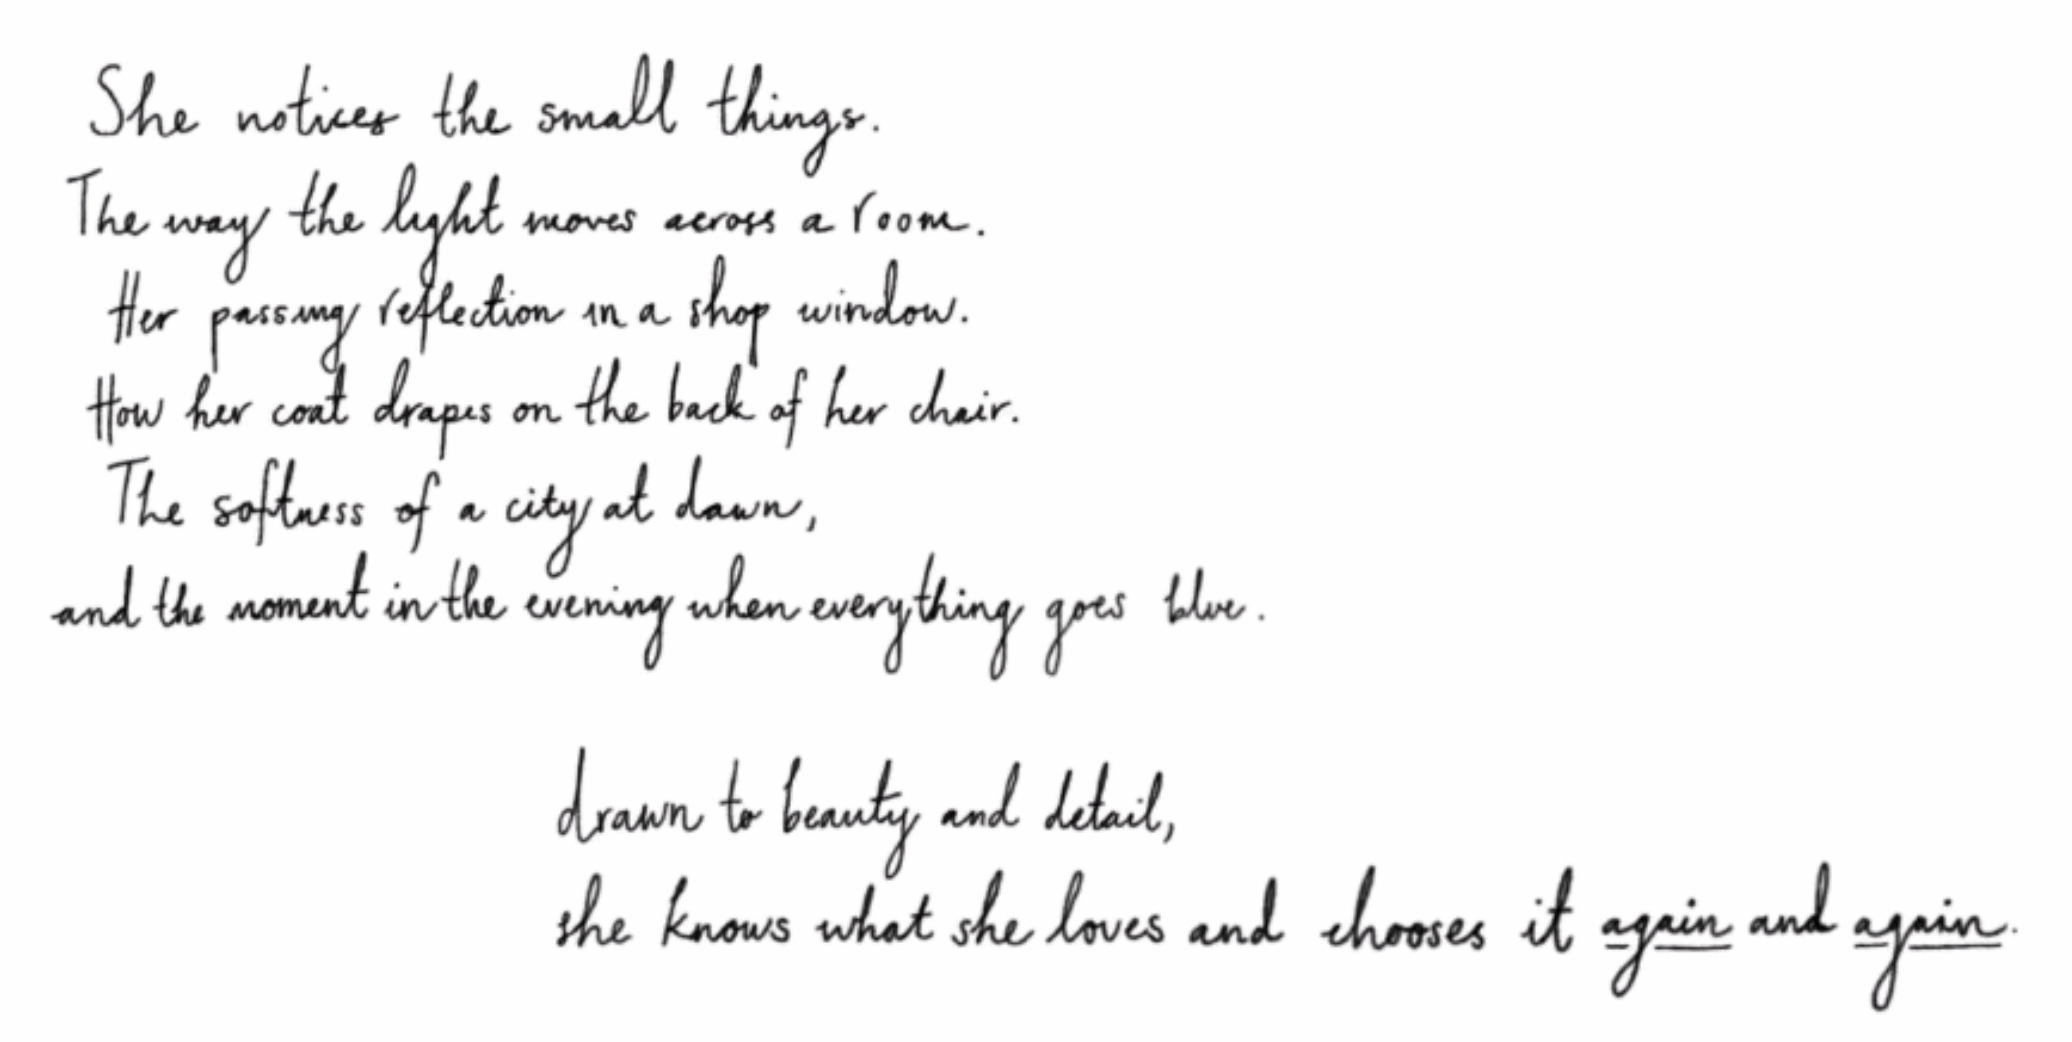 She notices the small things.
The way the light moves across a room.
Her passing reflection in a shop window.
How her coat drapes on the back of her chair.
The softness of a city at dawn,
and the moment in the evening when everything goes blue.
drawn to beauty and detail,
she knows what she loves and chooses it again and again.